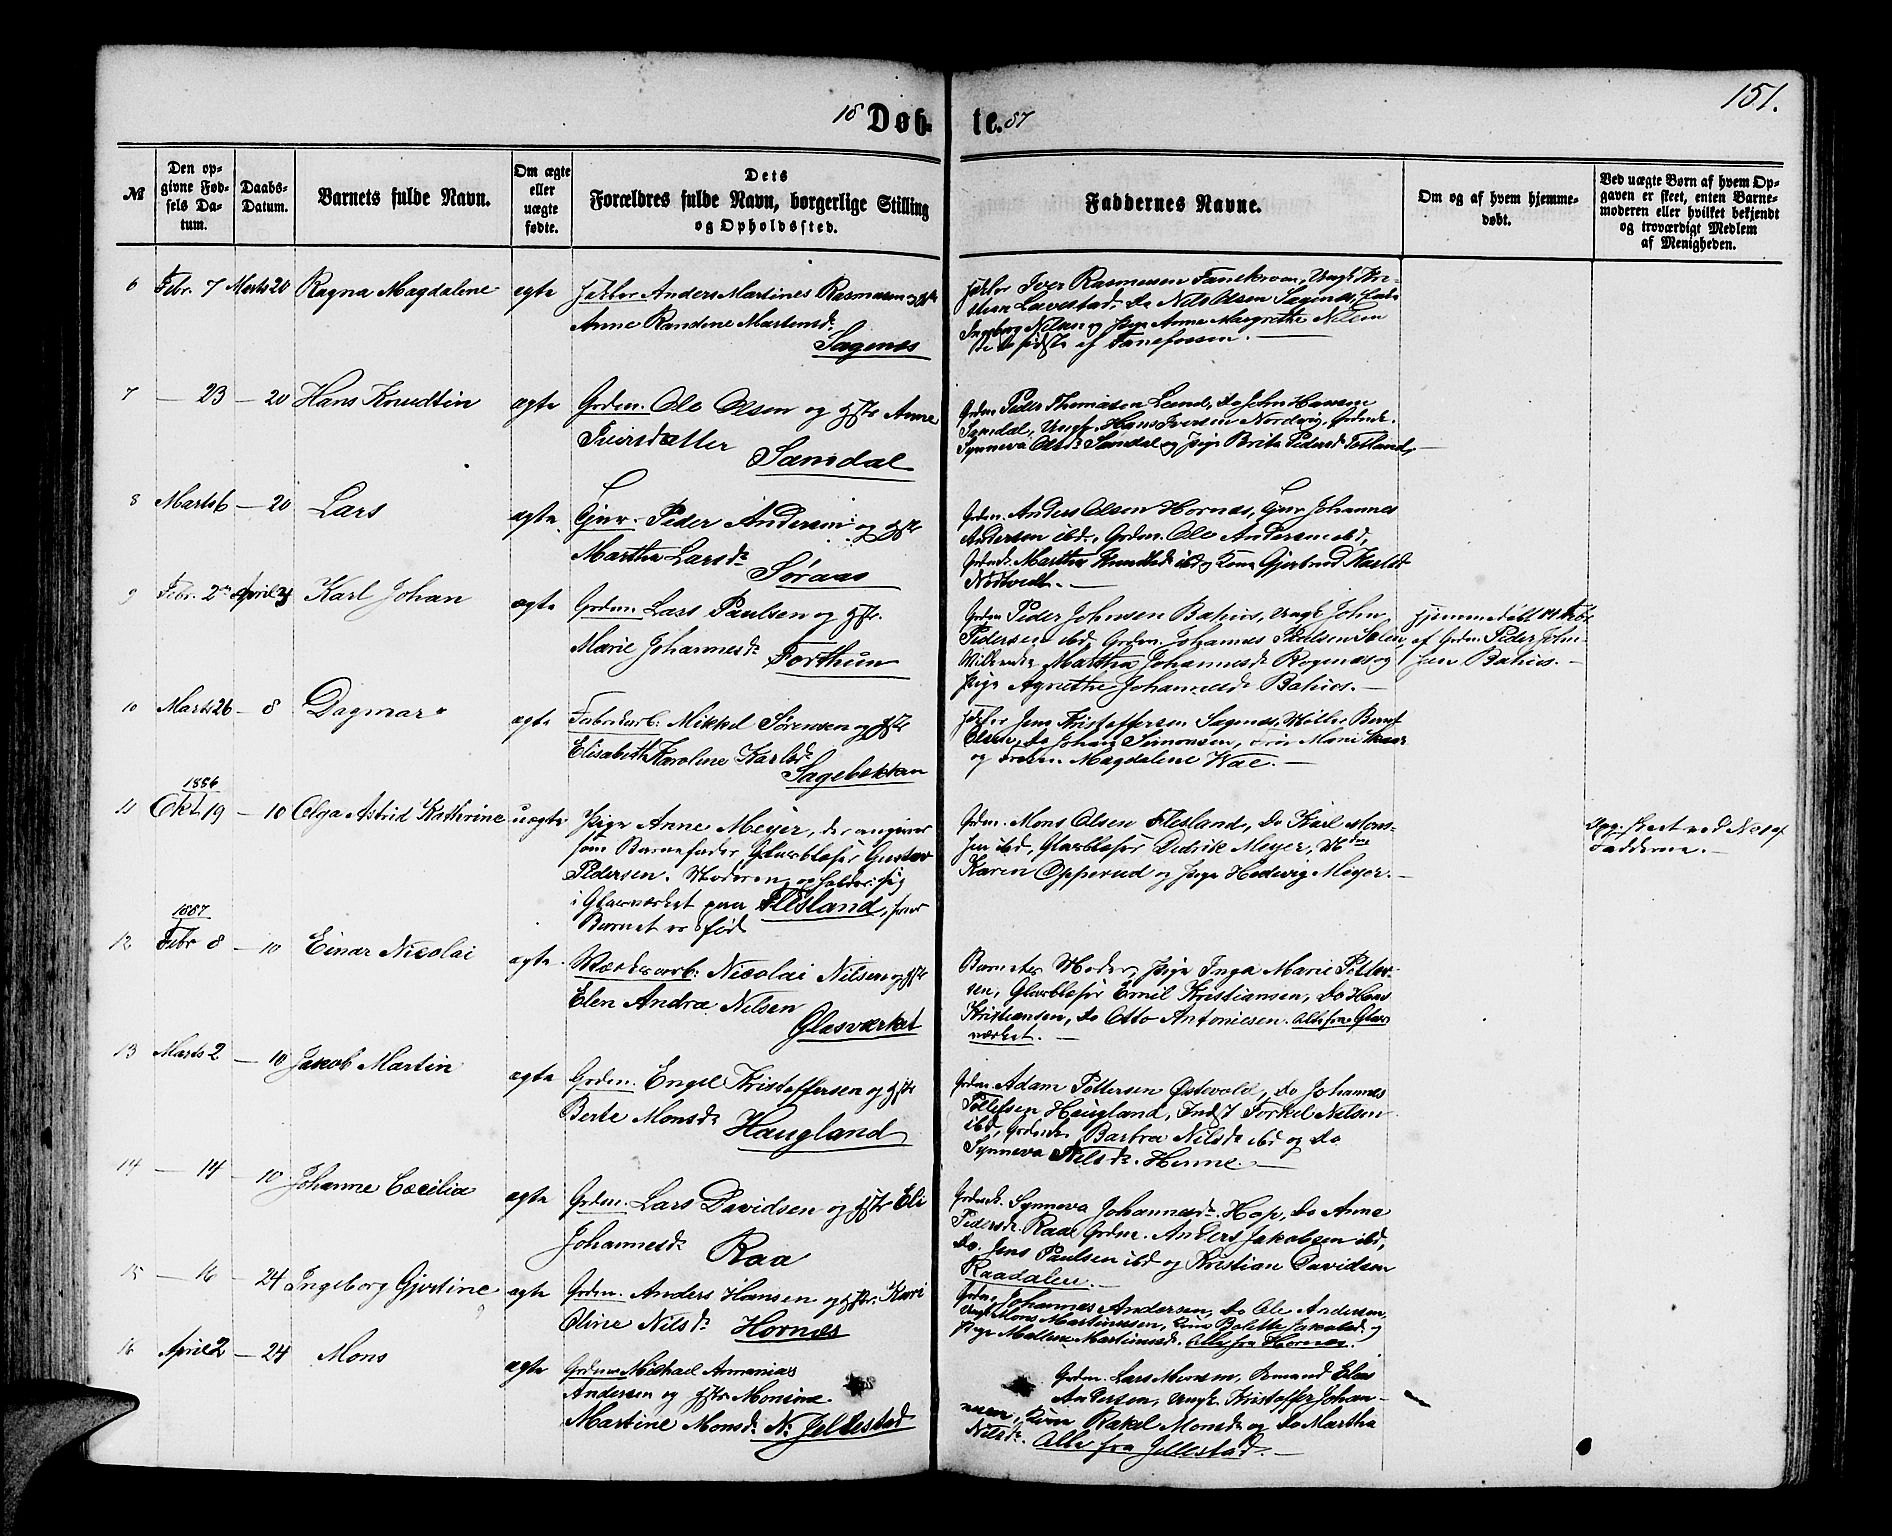 151.
18 Døb- te. 87
№
Den opgivne Fødsels Datum.
Daabs-Datum.
Barnets fulde Navn.
Om ægte eller uægte fødte.
Dets
Forældres fulde Navn, borgerlige Stilling
og Opholdssted.
Faddernes Navne.
Om og af hvem hjemmedøbt.
Ved uægte Børn af hvem Opgaven er skeet, enten Barnemoderen eller hvilket bekjendt og troværdigt Medlem af Menigheden.
6 Febr. 7 Marts 20 Ragna Magdalene ægte Anders Martines Rasmussen
Anne Randine Martensdr
Sagenes
Iver Rasmussen
Nils Olsen Sagenes
Ingeborg Nilsen og Pige Anne Margrethe Nilsen
7 — 23 — 20 Hans Knudtin ægte Grdm. Ole Olsen og Hstr Anne
Iversdatter
Samdal
Grdm. Peder Thomassen Lund, Do John Hansen
Samdal, Ungk. Hans Iversen Nordvig, Grdmk.
Synneva Olsdr Samdal og Pige Brita Pedersdr Totland
8 Marts 6 — 20 Lars ægte Gjnv. Peder Andersen og Hstr
Martha Larsdr
Søraas
Grdm. Anders Olsen Hornæs, Gjnv Johannes
Andersen ibd, Grdm. Ole Andersen ibd,
Grdmk. Martha Knudsdr ibd og Kone Gjertrud
Nedtvedt.
9 Febr. 2den April 3 Karl Johan ægte Grdm. Lars Paulsen og Hstr.
Marie Johannesdr
Forthun
Grdm Peder Johnsen Bahus, Ungk John
Pedersen ibd Grdm. Johannes
Martha Johannesdr Rogenæs og
Pige Agnethe Johannesdr Bahus.
Hjemmedøbt 14 Febr
af Grdm. Peder John-
sen Bahus.
10 Marts 26 — 8 Dagmar ægte Fabrikarb. Mikkel Sørensen og Hstr
Elisabeth Karoline Karlsdr
Sagebakken
Jens Kristoffersen Sagenes, Møller Bernt
Olsen, Do Johan Simonsen, Frøk Marie
og Frøken Magdalene Wae.
1886
11 Okt. 19 — 10 Olga Astrid Kathrine uægte Pige Anne Meyer, der angiver
som Barnefader Glasblæser Gustav
Pedersen. Moderen opholder sig
i Glasværket paa Flesland, hvor
Barnet er født
Grdm. Mons Olsen Flesland, Do Karl Mons-
sen ibd, Glasblæser Didrik Meyer, Md
Karen Opperud og Pige Hedevig Meyer.
Opg. skeet ved
Fadderne.
1887
12 Febr 8 — 10 Einar Nicolai ægte Nicolai Nilsen og Hstr
Elen Andrea Nilsen
Glasværket
Barnets Moder, Pige Inga Marie Petter-
sen, Glasblæser Emil Kristiansen, Do Hans
Kristiansen, Do Otto Antoniesen. Alle fra Glas-
værket.
13 Marts 2 — 10 Jakob Martin ægte Grdm. Engel Kristoffersen og Hstr
Berte Monsdr
Haugland
Grdm. Adam Pettersen Østevold, Do Johannes
Tollefsen Haugland, Inds Torkel Nilsen
ibd, Grdmk. Barbra Nilsdr ibd og Do
Synneva Nilsdr. Henne.
14 — 14 — 10 Johanne Cæcilia ægte Grdm. Lars Davidsen og Hstr Eli
Johannesdr
Raa
Grdmk. Synneva Johannesdr. Hop, Do Anne
Pedersdr. Raa Grdm. Anders Jakobsen ibd,
Do. Jens Paulsen ibd og Kristian Davidsen
Raadalen.
15 — 16 — 24 Ingeborg Gjertine ægte Grdm. Anders Hansen og Hstr. Kari
Oline Nilsdr
Hornæs
Grdm. Johannes Andersen, Do Ole Andersen,
Ungk Mons Martinussen, Kone Bolette Jakobsdr og
Pige Martinusdr. Alle fra Hornæs.
16 April 2 — 24 Mons ægte Grdm Michael Ananias
Andersen og Hstr Monsine
Martine Monsdr. N. Jellestad
Grdm. Lars Monsen, Elias
Andersen, Ungk. Kristoffer Johan-
nesen, Kone Rakel Monsdr og Do Martha
Nilsdr. Alle fra Jellestad.